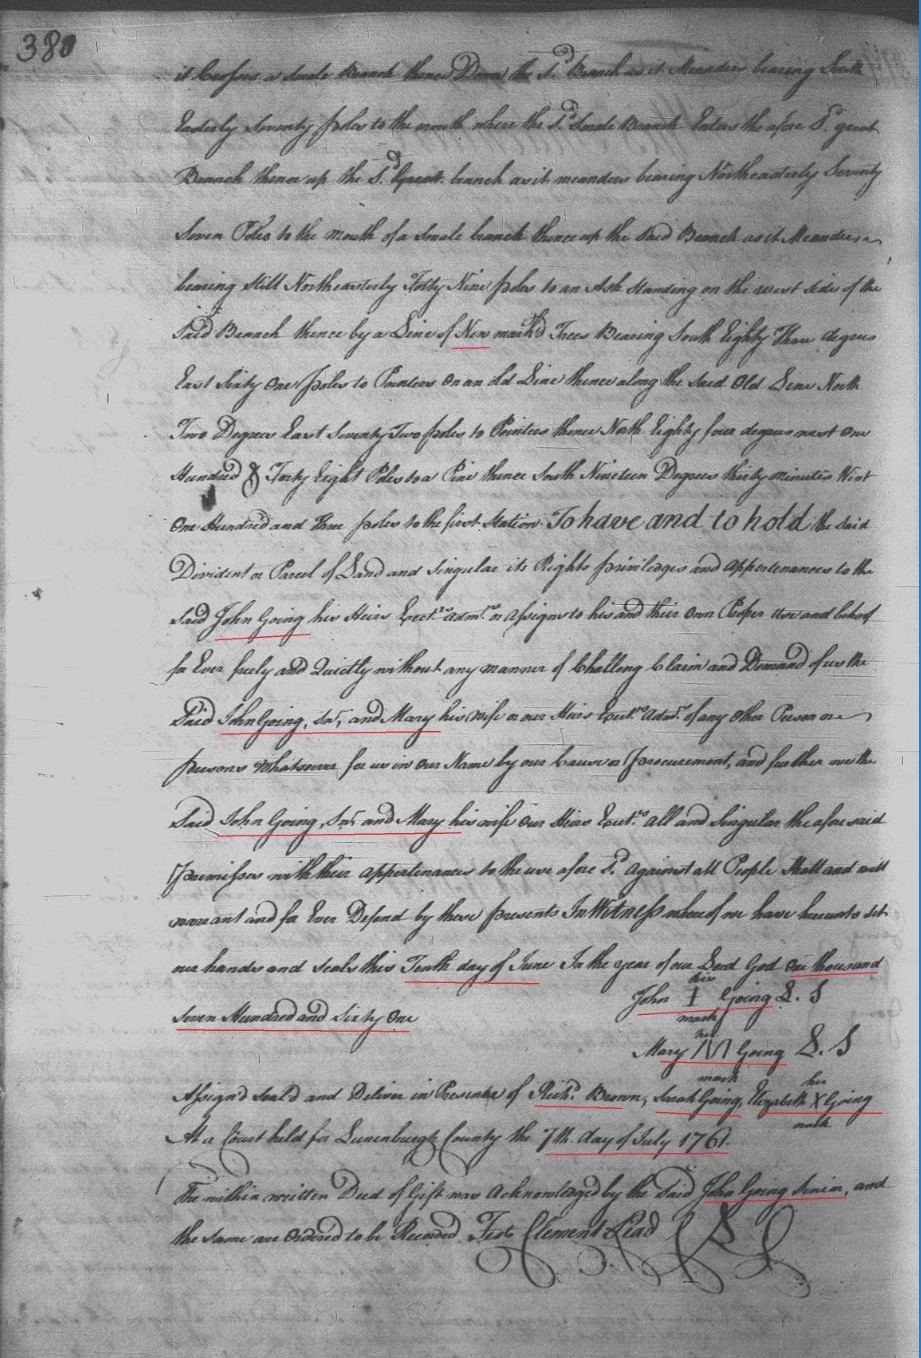 380
it Crosses a Smale Branch thence Down the Sd. Branch as it Meanders bearing South
Easterly Seventy poles to the mouth where the Sd. Smale Branch Enters the afore Sd. great
Branch thence up the Sd. Great branch as it meanders bearing Northeasterly Seventy
Seven Poles to the mouth of a Smale branch thence up the Said Branch as it Meanders
bearing Still Northeasterly Forty Nine poles to an Ash Standing on the west side of the
Said Branch thence by a Line of New mark'd Trees Bearing South Eighty Three degrees
East Sixty One poles to Pointers on an Old Line thence along the Said Old Line North
Two Degrees East Seventy Two poles to Pointers thence North Eighty four degrees west One
Hundred & Forty Eight Poles to a Pine thence South Nineteen Degrees thirty minutes West
One Hundred and Three poles to the first Station To have and to hold the said
Divident or Parcel of Land and Singular its Rights priviledges and appertenances to the
Said John Going his Heirs Exect.rs Adm.rs or Assigns to his and their Own Proper use and behoof
for Ever freely and Quietly without any manner of Challeng Claim and Demand of us the
Said John Going, Snr, and Mary his wife or our Heirs Exect.rs Adm.rs of any Other Person or
persons Whatsoever for us in Our Name by our Cause or procurement, and further we the
Said John Going, Snr. and Mary his wife Our Heirs Exect.rs all and Singular the afore said
premisses with their appertenances to the use afore Sd. against all People Shall and will
warrant and for Ever Defend by these presents In Witness whereof we have hereunto Set
our hands and seals this Tenth day of June In the year of our Lord God One thousand
Seven Hundred and Sixty One
his
John I Going L. S
mark
her
Mary M Going L. S
mark
Assign'd Seal'd and Deliver in Presents of Richd. Brown, Sarah Going, Elizabeth X Going
her
mark
At a Court held for Lunenburgh County the 7th. day of July 1761.
The within written Deed of Gift was Acknowledged by the Said John Going Senior, and
the same are Ordered to be Recorded Test Clement Read